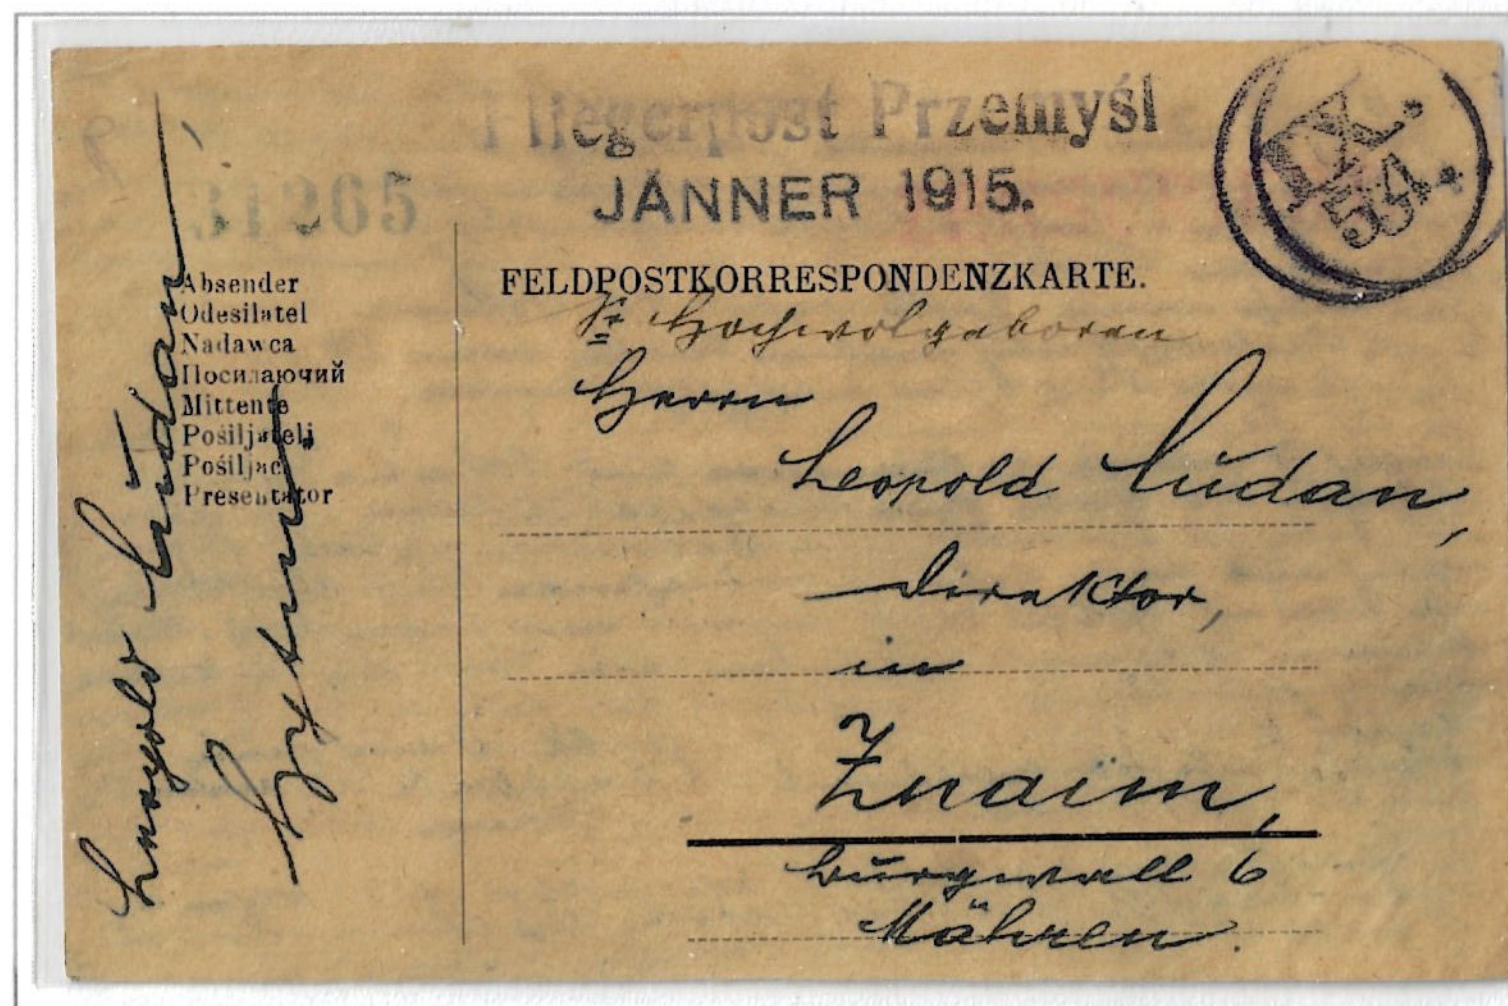 Fliegerpost Przemyśl
JÄNNER 1915.
31265
IX.
554
Absender
Odesilatel
Nadawca
Посилаючий
Mittente
Pošiljatelj
Pošiljač
Presentator
Leopold Ludan
FELDPOSTKORRESPONDENZKARTE.
Sr Hochwolgeboren
Herrn
Leopold Ludan,
Direktor,
in
Znaim,
Burgwall 6
Mähren.